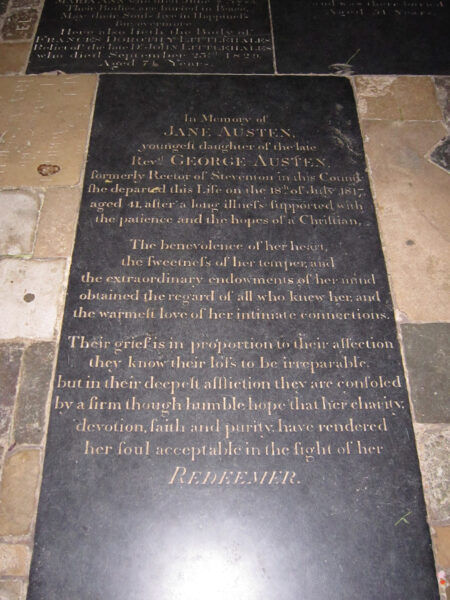 MARIANNA who died June
Their Bodies are buried in Peace,
May their Souls live in Happiness
for evermore.
Here also lieth the Body of
FRANCES DOROTHY LITTLEHALES
Relict of the late Dr. JOHN LITTLEHALES
who died September 23rd 1829.
Aged 74 Years.
and was there buried
Aged 51 Years.
In Memory of
JANE AUSTEN,
youngest daughter of the late
Revd. GEORGE AUSTEN,
formerly Rector of Steventon in this County
ſhe departed this Life on the 18th of July 1817,
aged 41, after a long illneſs ſupported with
the patience and the hopes of a Chriſtian.
The benevolence of her heart,
the ſweetneſs of her temper, and
the extraordinary endowments of her mind
obtained the regard of all who knew her, and
the warmeſt love of her intimate connections.
Their grief is in proportion to their affection
they know their loſs to be irreparable,
but in their deepeſt affliction they are conſoled
by a firm though humble hope that her charity,
devotion, faith and purity, have rendered
her ſoul acceptable in the ſight of her
REDEEMER.